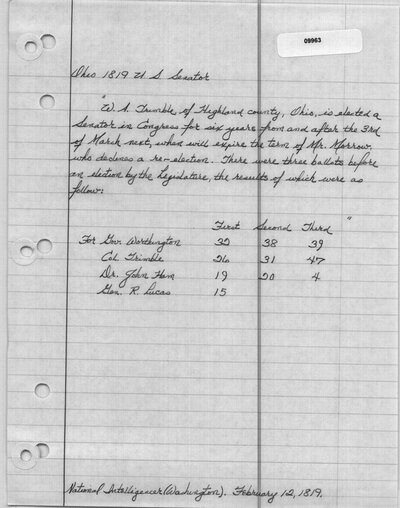 09963
Ohio 1819 U S Senator
"W. A. Trimble, of Highland county, Ohio, is elected a
Senator in Congress for six years from and after the 3rd
of March next, when will expire the term of Mr. Morrow,
who declines a re-election. There were three ballots before
an election by the Legislature, the results of which were as
follow:
"
First Second Third
For Gov. Worthington 32 38 39
Col. Trimble 26 31 47
Dr. John Ham 19 20 4
Gen. R. Lucas 15
National Intelligencer (Washington). February 12, 1819.